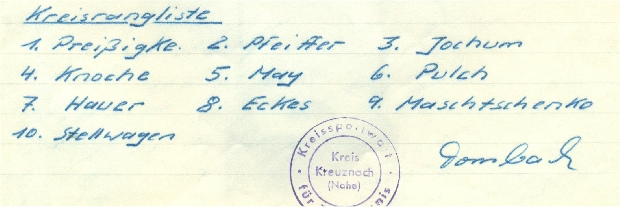 Kreisrangliste
1. Preißigke. 2. Pfeiffer 3. Jochum
4. Knoche 5. May 6. Pulch
7. Hauer 8. Eckes 9. Maschtschenko
10. Stellwagen
Kreissportwart
Kreis
Kreuznach
(Nahe)
für
Dombach